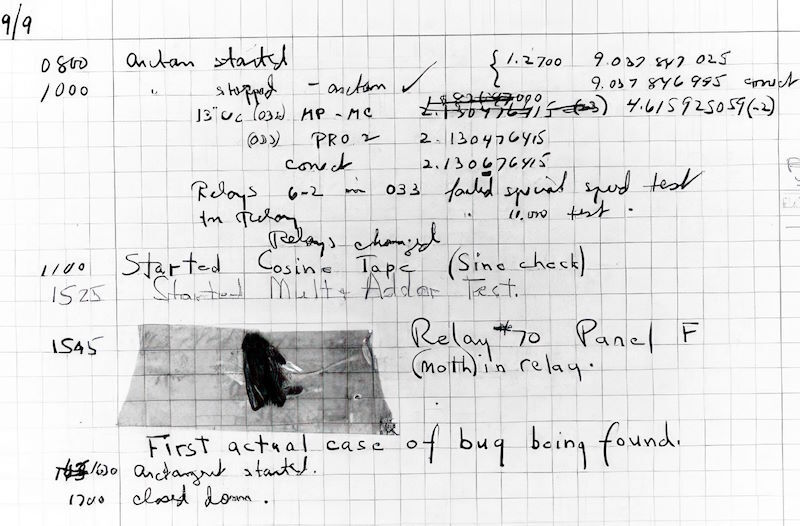 9/9
0800 arctan started { 1.2700 9.037 847 025
1000 " stopped - arctan ✓ 9.037 846 995 correct
13"uc (032) MP - MC 2.130476415 (-3) 4.615925059(-2)
(033) PRO 2 2.130476415
correct 2.130676415
Relays 6-2 in 033 failed special speed test
in relay " 11.000 test .
Relays changed
1100 Started Cosine Tape (Sine check)
1525 Started Mult + Adder Test.
1545 Relay #70 Panel F
(moth) in relay.
First actual case of bug being found.
1630 arctangent started.
1700 closed down .